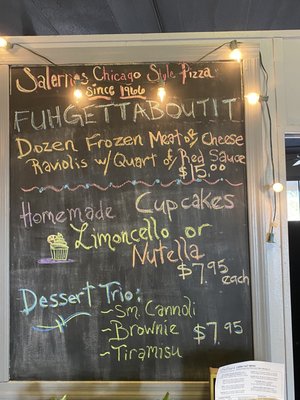 Salerno's Chicago Style Pizza
Since 1966
FUHGETTABOUTIT
Dozen Frozen Meat or Cheese
Raviolis w/ Quart of Red Sauce
$15.00
Homemade Cupcakes
Limoncello or
Nutella
$7.95
each
Dessert Trio:
~Sm. Cannoli
~Brownie $7.95
~Tiramisu